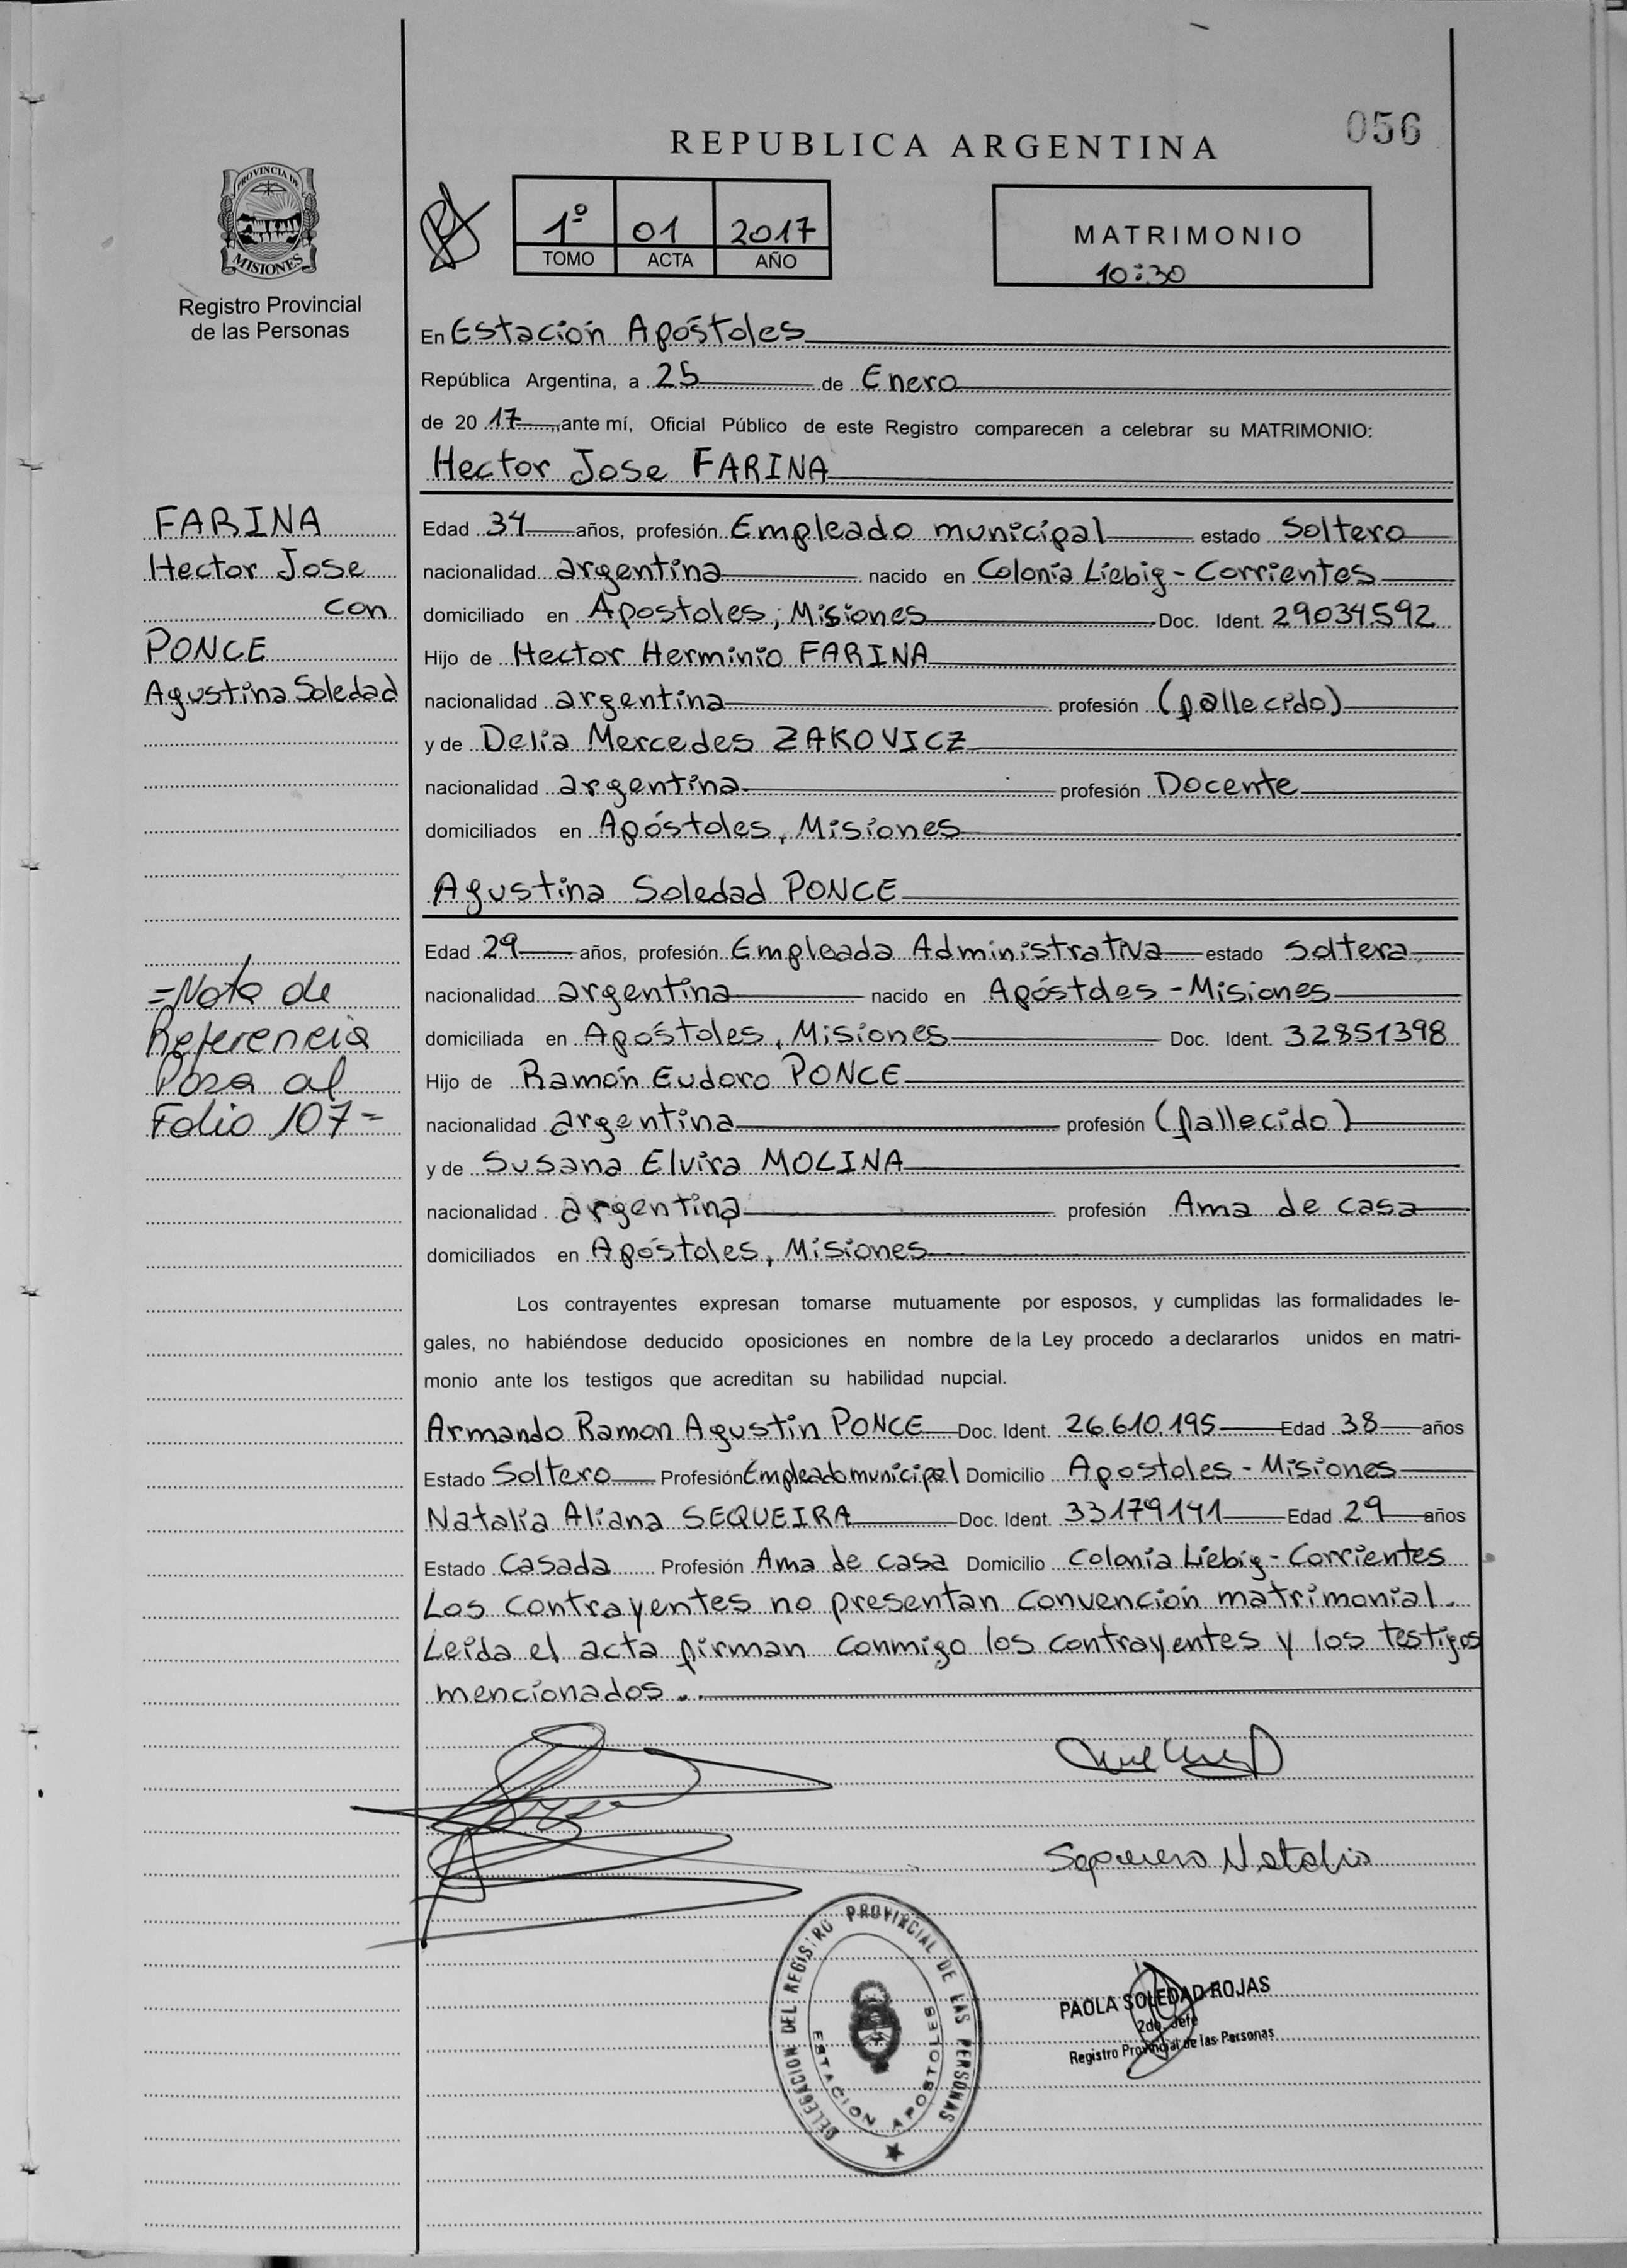 056
REPUBLICA ARGENTINA
PROVINCIA DE
MISIONES
Registro Provincial
de las Personas
1º 01 2017
TOMO ACTA AÑO
MATRIMONIO
10:30
En Estación Apóstoles
República Argentina, a 25 de Enero
de 20 17, ante mí, Oficial Público de este Registro comparecen a celebrar su MATRIMONIO:
Hector Jose FARINA
FARINA
Hector Jose
con
PONCE
Agustina Soledad
Edad 34 años, profesión Empleado municipal estado Soltero
nacionalidad argentina nacido en Colonia Liebig - Corrientes
domiciliado en Apostoles, Misiones Doc. Ident. 29034592
Hijo de Hector Herminio FARINA
nacionalidad argentina profesión (fallecido)
y de Delia Mercedes ZAKOVICZ
nacionalidad argentina profesión Docente
domiciliados en Apóstoles, Misiones
Agustina Soledad PONCE
Edad 29 años, profesión Empleada Administrativa estado Soltera
nacionalidad argentina nacido en Apóstoles - Misiones
domiciliada en Apóstoles, Misiones Doc. Ident. 32851398
Hijo de Ramón Eudoro PONCE
nacionalidad argentina profesión (fallecido)
y de Susana Elvira MOLINA
nacionalidad argentina profesión Ama de casa
domiciliados en Apóstoles, Misiones
=Nota de
Referencia
Pasa al
Folio 107=
Los contrayentes expresan tomarse mutuamente por esposos, y cumplidas las formalidades le-
gales, no habiéndose deducido oposiciones en nombre de la Ley procedo a declararlos unidos en matri-
monio ante los testigos que acreditan su habilidad nupcial.
Armando Ramon Agustin PONCE Doc. Ident. 26.610.195 Edad 38 años
Estado Soltero Profesión Empleado municipal Domicilio Apostoles - Misiones
Natalia Aliana SEQUEIRA Doc. Ident. 33179141 Edad 29 años
Estado Casada Profesión Ama de casa Domicilio Colonia Liebig - Corrientes
Los contrayentes no presentan convención matrimonial.
Leida el acta firman conmigo los contrayentes y los testigos
mencionados..
Natalia
DELEGACION DEL REGISTRO PROVINCIAL DE LAS PERSONAS
ESTACION APOSTOLES
PAOLA SOLEDAD ROJAS
2do. Jefe
Registro Provincial de las Personas